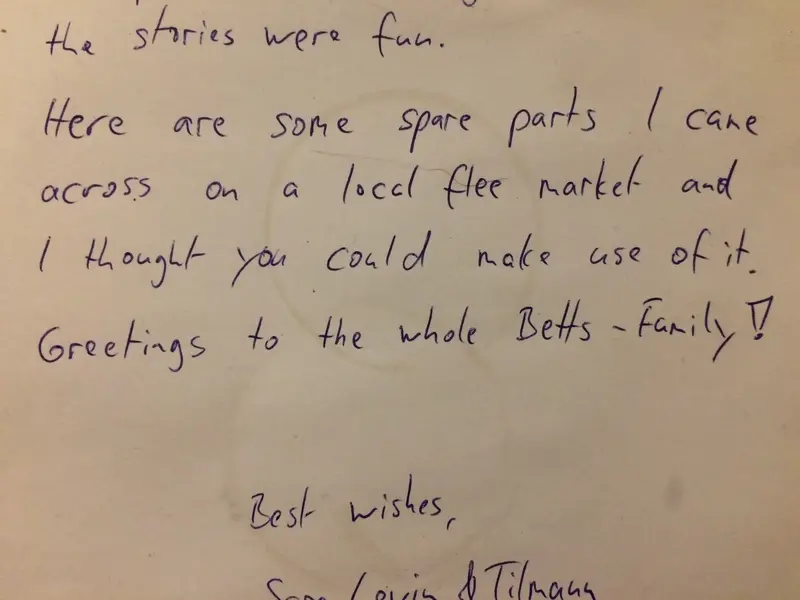 the stories were fun.
Here are some spare parts I came
across on a local flee market and
I thought you could make use of it.
Greetings to the whole Betts-Family!
Best wishes,
& Tilmann